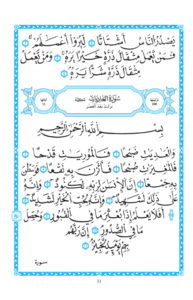 يَصْدُرُ النَّاسُ أَشْتَاتًا لِّيُرَوْا أَعْمَٰلَهُمْ ۝
فَمَن يَعْمَلْ مِثْقَالَ ذَرَّةٍ خَيْرًا يَرَهُۥ ۝ وَمَن يَعْمَلْ
مِثْقَالَ ذَرَّةٍ شَرًّا يَرَهُۥ ۝
سُورَةُ العَادِيَاتِ
نزلت بعد العصر
بِسْمِ اللَّهِ الرَّحْمَٰنِ الرَّحِيمِ
وَالْعَٰدِيَٰتِ ضَبْحًا ۝ فَالْمُورِيَٰتِ قَدْحًا ۝
فَالْمُغِيرَٰتِ صُبْحًا ۝ فَأَثَرْنَ بِهِۦ نَقْعًا ۝ فَوَسَطْنَ
بِهِۦ جَمْعًا ۝ إِنَّ الْإِنسَٰنَ لِرَبِّهِۦ لَكَنُودٌ ۝ وَإِنَّهُۥ
عَلَىٰ ذَٰلِكَ لَشَهِيدٌ ۝ وَإِنَّهُۥ لِحُبِّ الْخَيْرِ لَشَدِيدٌ ۝
أَفَلَا يَعْلَمُ إِذَا بُعْثِرَ مَا فِي الْقُبُورِ ۝ وَحُصِّلَ
مَا فِي الصُّدُورِ ۝ إِنَّ رَبَّهُم
بِهِمْ يَوْمَئِذٍ لَّخَبِيرٌ ۝
سورة
51